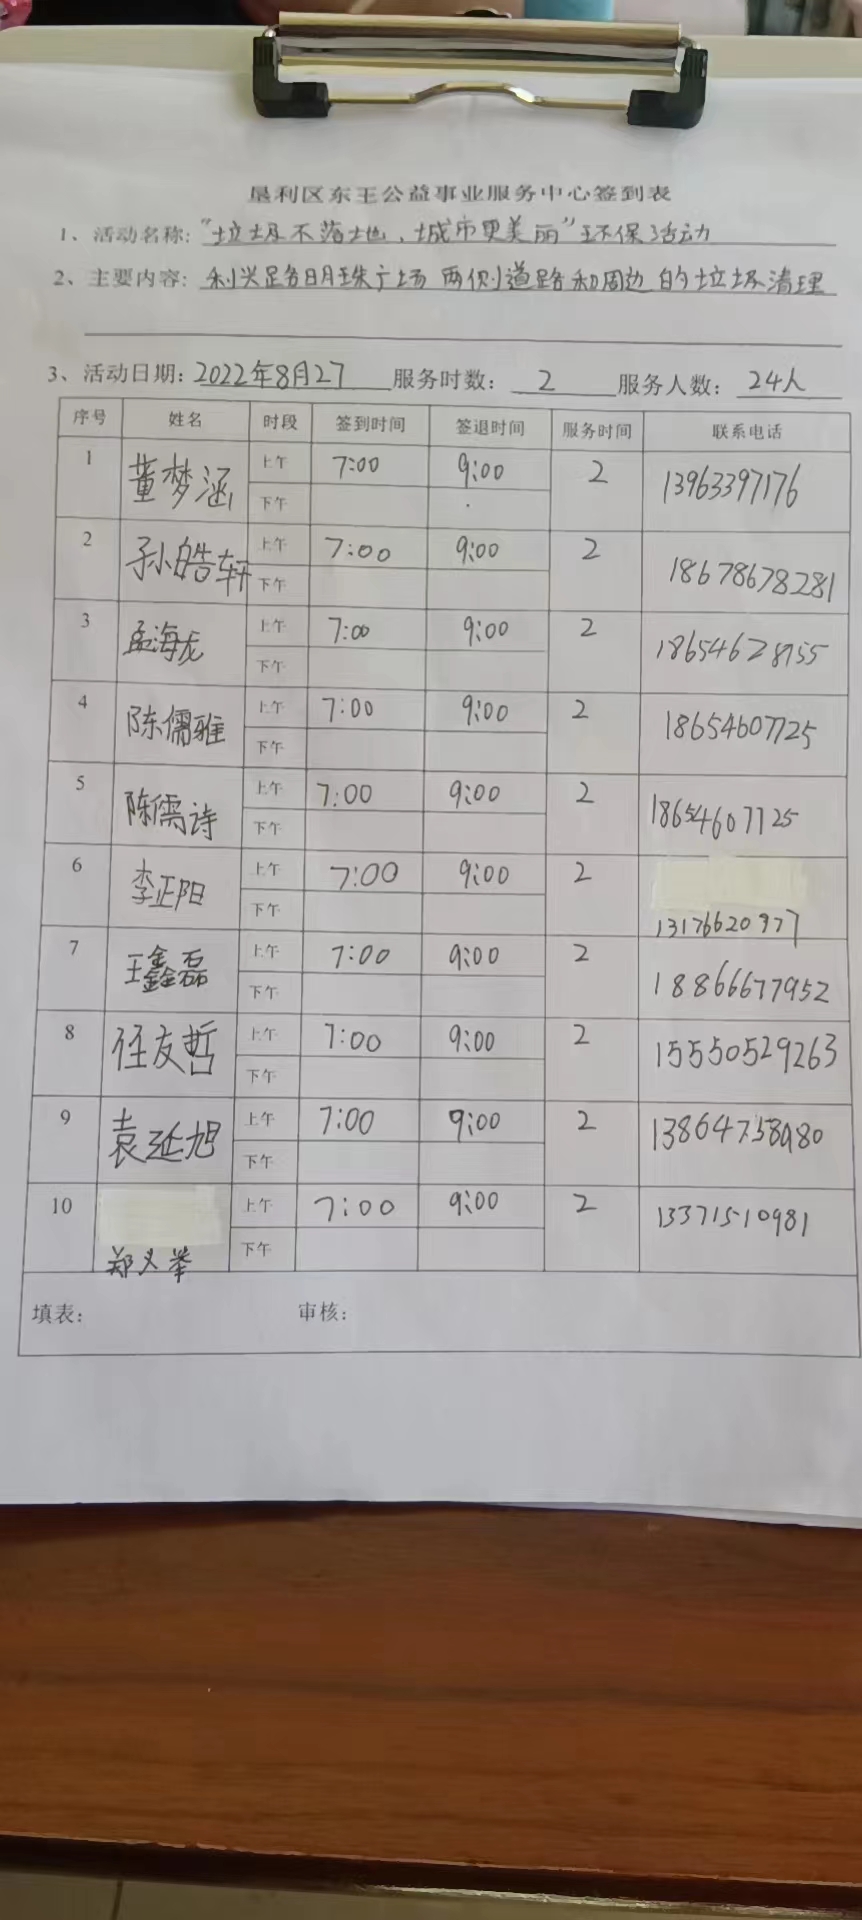 垦利区东王公益事业服务中心签到表
1、活动名称:"垃圾不落地、城市更美丽"环保活动
2、主要内容: 利兴路明珠广场两侧道路和周边的垃圾清理
3、活动日期: 2022年8月27 服务时数: 2 服务人数: 24人
序号 姓名 时段 签到时间 签退时间 服务时间 联系电话
1 董梦涵 上午 7:00 9:00 2 13963397176
下午
2 孙皓轩 上午 7:00 9:00 2 18678678281
下午
3 孟海龙 上午 7:00 9:00 2 18654628755
下午
4 陈儒雅 上午 7:00 9:00 2 18654607725
下午
5 陈儒诗 上午 7:00 9:00 2 18654607725
下午
6 李正阳 上午 7:00 9:00 2 13176620977
下午
7 王鑫磊 上午 7:00 9:00 2 18866677952
下午
8 任友哲 上午 7:00 9:00 2 15550529263
下午
9 袁延旭 上午 7:00 9:00 2
下午
10 郑义举 上午 7:00 9:00 2 13371510981
下午
填表: 审核: